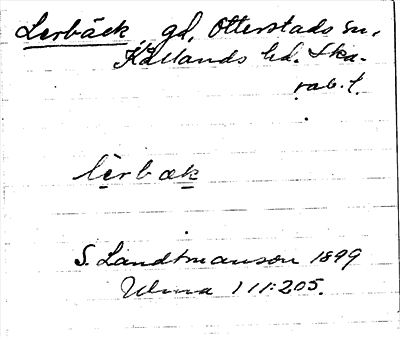 Lerbäck, gd, Otterstads sn,
Kållands hd. Ska-
rab. l.
lerbæk
S. Landtmanson 1899
Ulma 111:205.